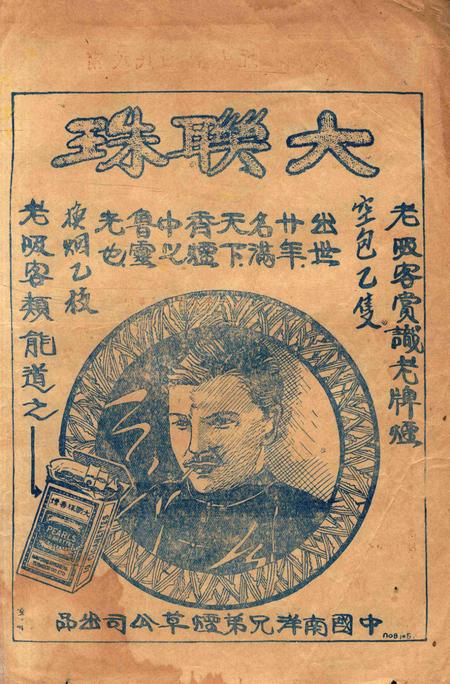 大聯珠
老吸客賞識老牌煙
空包乙隻
出世
廿年
名滿
天下
香煙
中之
魯靈
光也
換烟乙枝
老吸客類能道之
PEARLS
中國南洋兄弟煙草公司出品